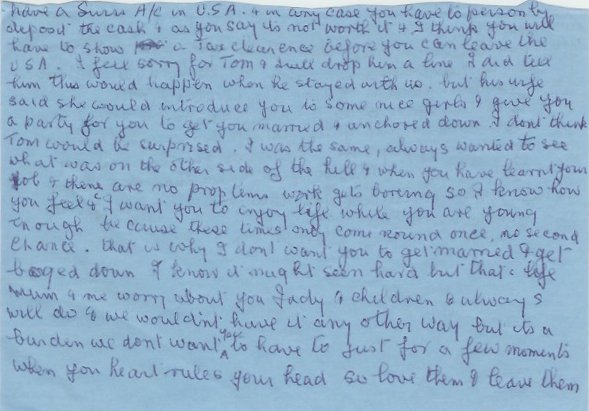 have a Swiss A/c in U.S.A. & in any case you have to personly
deposit the cash & as you say its not worth it & I think you will
have to show a Tax clearence before you can leave the
USA. I feel sorry for Tom & will drop him a line I did tell
him this would happen when he stayed with us. but his wife
said she would introduce you to some nice girls & give you
a party for you to get you married & anchored down. I dont think
Tom would be surprised. I was the same, always wanted to see
what was on the other side of the hill & when you have learnt your
job & there are no proplems work gets boreing so I know how
you feel & I want you to injoy life while you are young
enough because these times only come round once, no second
chance. that is why I dont want you to get married & get
boged down I know it might seen hard but thats life
mum & me worry about you Jady & children & always
will do & we wouldint have it any other way but its a
burden we dont want you to have to just for a few moments
when you heart rules your head so love them & leave them